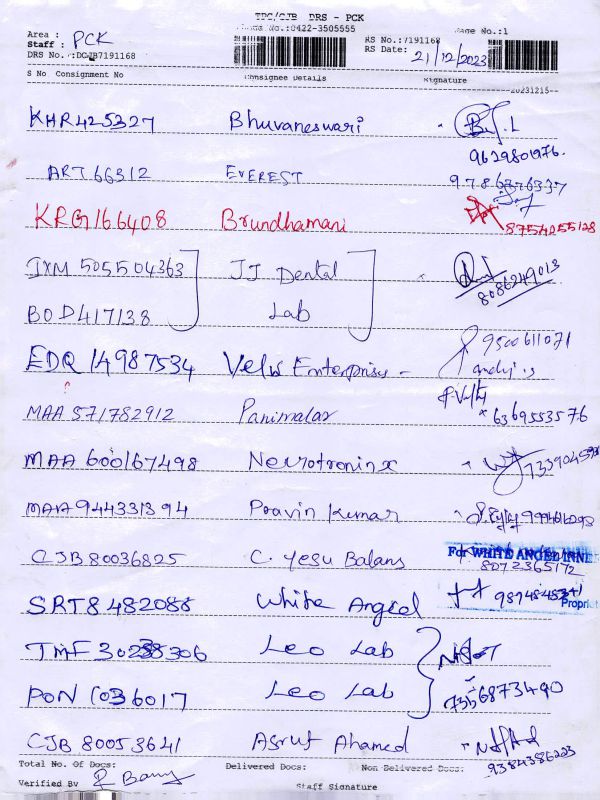 TPC/CJB DRS - PCK
Phone No.:0422-3505555
Page No.:1
Area : PCK
Staff :
RS No.:7191168
DRS No.:DCJB7191168
RS Date: 21/12/2023
S No Consignment No Consignee Details Signature
20231215--
KHR425327 Bhuvaneswari
9629801976.
ART66312 EVEREST 9786376337
KRG166408 Brundhamani 8754255128
IXM 505504363 JJ Dental 8086249013
BOD417138 Lab
EDQ 14987534 Velu Enterprises - 9500611071
MAA 571782912 Panimalar 6369553576
MAA 600167498 Neurotroninx
MAA 944331394 Pravin Kumar
CJB80036825 C. Yesu Balans 8072365172
For WHITE ANGEL
SRT8482088 White Angel
Propriet
TMF Leo Lab
PON 1036017 Leo Lab
CJB 80053641 Asruf Ahamed 9384386223
Total No. Of Docs: Delivered Docs: Non Delivered Docs:
Verified By
Staff Signature